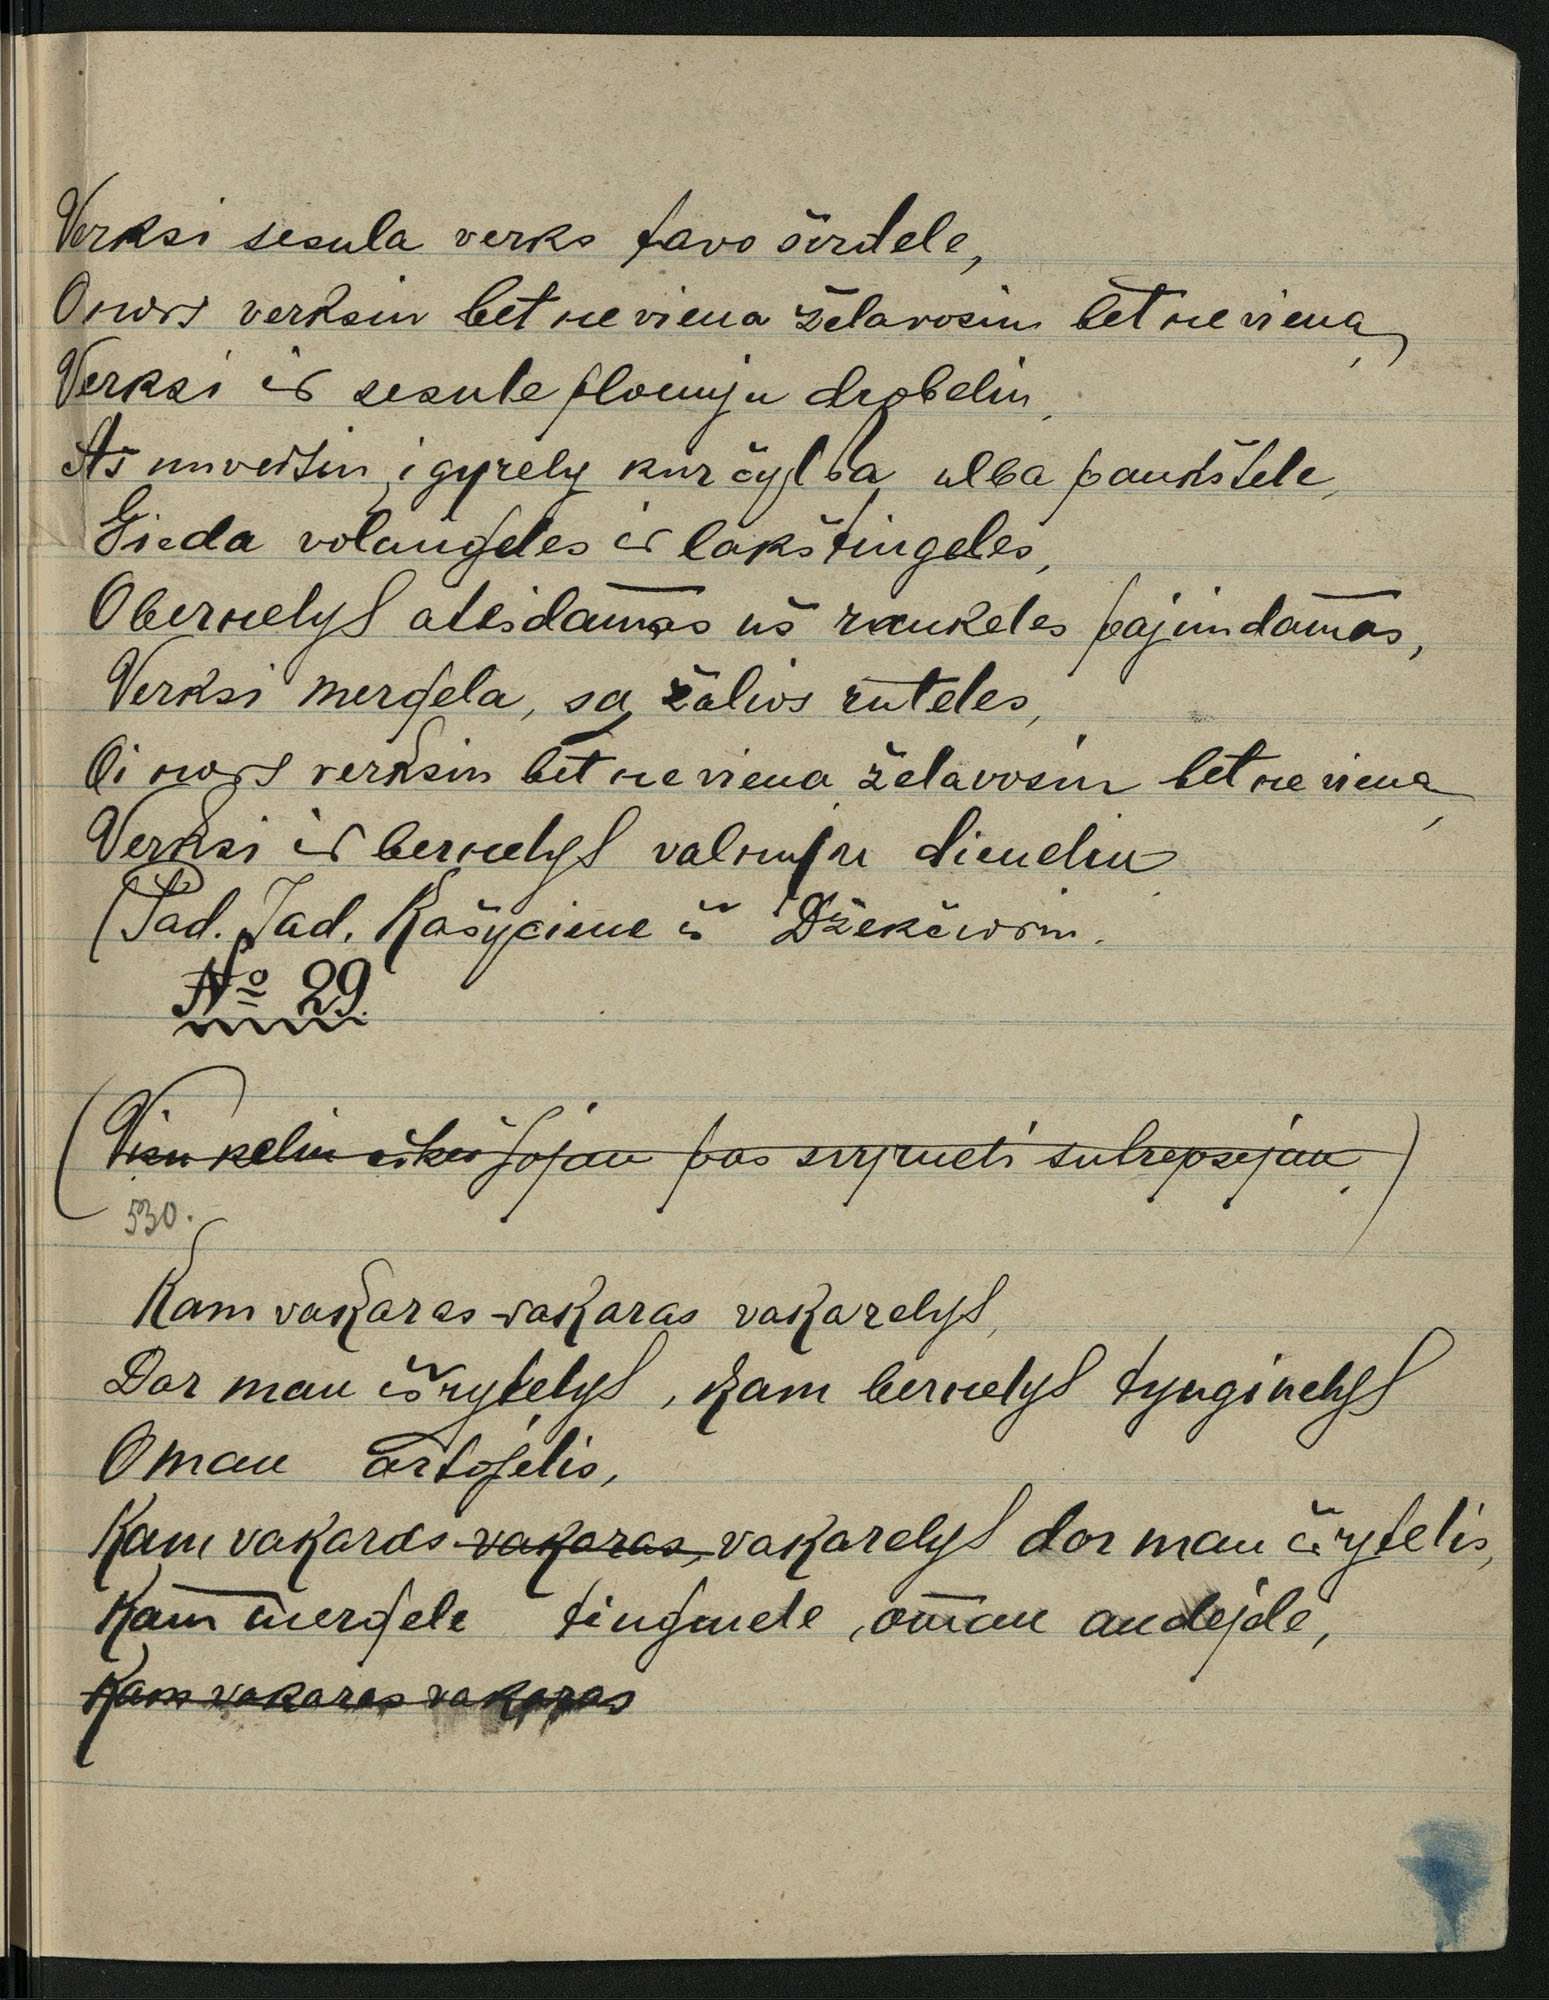 Verksi sesula verks tavo širdele,
O nors verksiu bet ne viena želavosiu bet ne viena,
Verksi ir sesule plonuju drobeliu,
Aš nuveisiu į gyrelę kur čylba ulba paukštele,
Gieda volungeles ir lakštingeles,
O bernelys ateidamas už rankeles pajimdamas,
Verksi mergela, są žalios ruteles,
Oi nors verksiu bet ne viena želavosiu bet ne viena,
Verksi ir bernelys valnuju dieneliu
(Pad. Jad. Kašyciene iš
№ 29.
(Visu keliu iškei jojau pas svyrneli
530.
Kam vakaras vakaras vakarelys,
Dar man išrytelys, kam bernelys tynginelys
O man artojelis,
Kam vakaras vakaras, vakarelys dar man išrytelis,
Kam mergele tinginele, o man audejele,
Kam vakaras vakaras